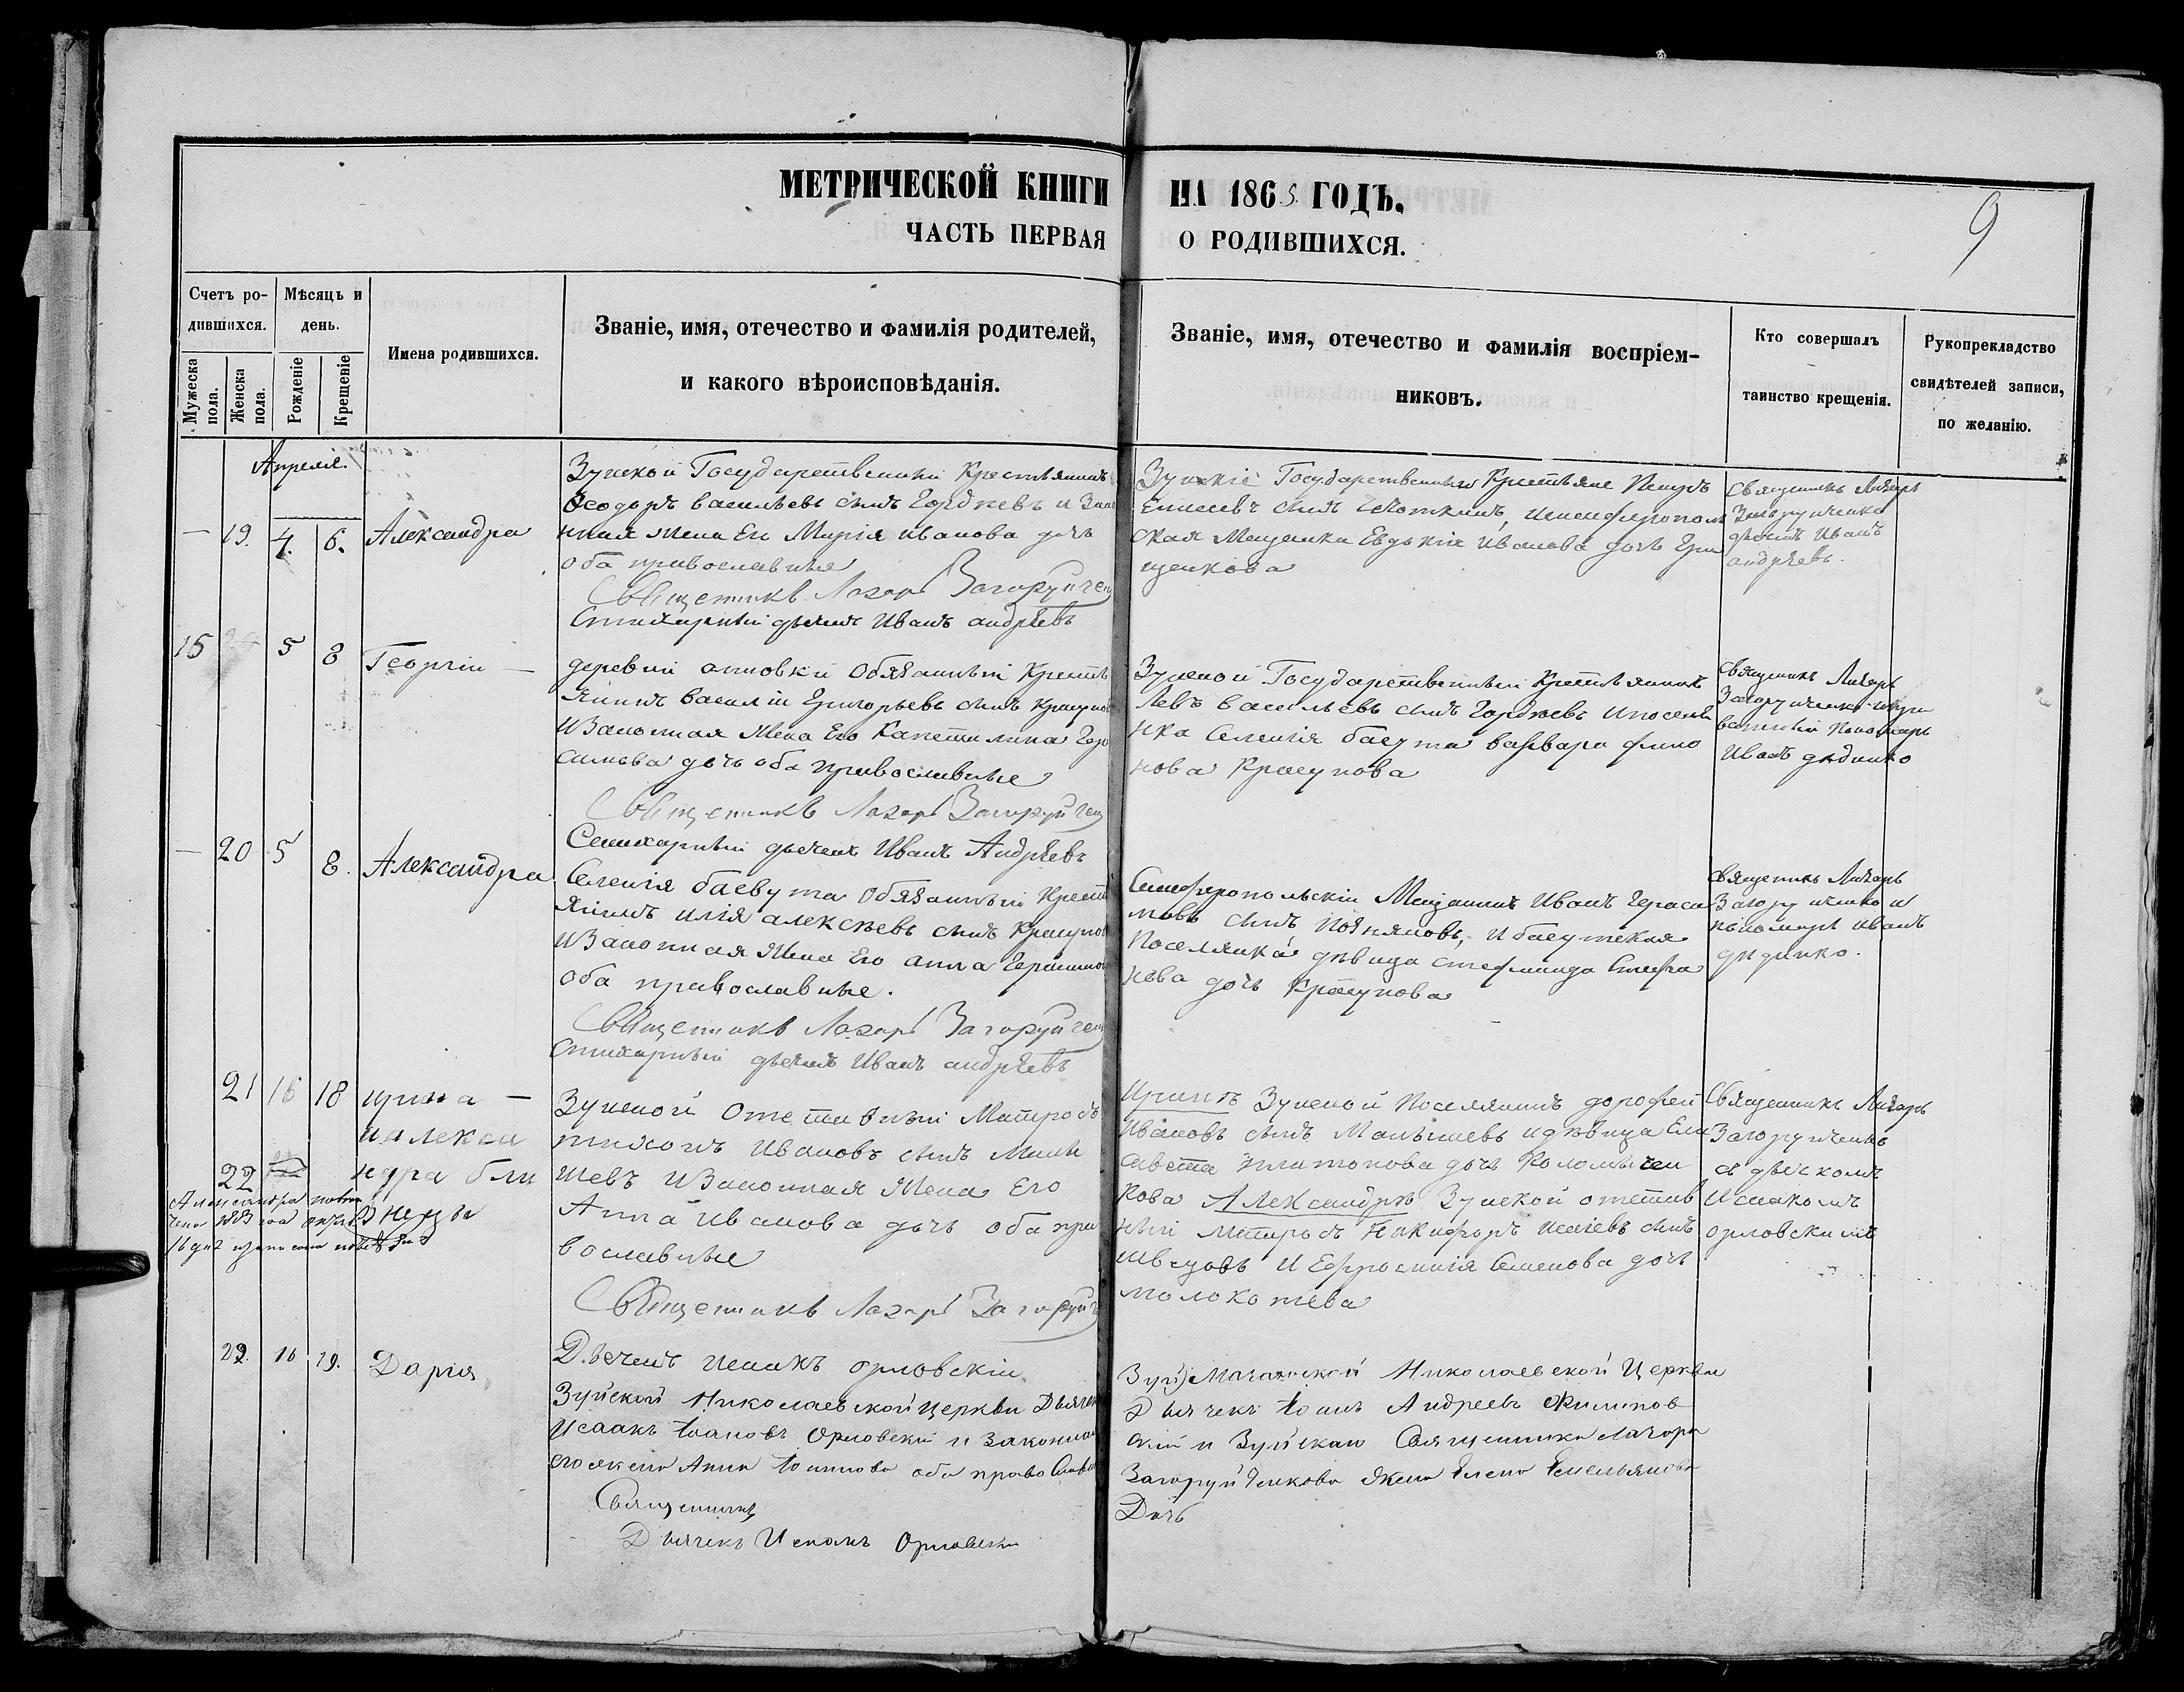 МЕТРИЧЕСКОЙ КНИГИ НА 1865 ГОДЪ.
ЧАСТЬ ПЕРВАЯ О РОДИВШИХСЯ.
9
Счетъ родившихся.
Мужеска пола.
Женска пола.
Мѣсяцъ и день.
Рожденіе
Крещеніе
Имена родившихся.
Званіе, имя, отечество и фамилія родителей,
и какого вѣроисповѣданія.
Званіе, имя, отечество и фамилія воспріем-
никовъ.
Кто совершалъ
таинство крещенія.
Рукоприкладство
свидѣтелей записи,
по желанію.
Апреля.
— 19. 4. 6. Александра
Зуйской Государственный Крестьянинъ
Ѳеодоръ васильевъ сынъ Гордѣевъ и Зако
нная жена Его Марія иванова дочь
оба православные
Священникъ Лазарь Загоруйчен
Стихарный дьячекъ Иванъ андрѣевъ
Зуйскіе Государственные Крестьяне
Елисеевъ сынъ исимферополь
ская Мещанка Евдокія Иванова дочь Гри
щенкова
Священникъ Лазарь
Загоруйченко
дьячекъ Иванъ
андрѣевъ.
15 5 8 Георгій —
деревни анновки Обязанный Кресть
янинъ василій Григорьевъ сынъ
и Законная Жена Его Капетилина Гера
симова дочь оба православные
Священникъ Лазарь Загоруйчен
Стихарный дьячекъ Иванъ Андрѣевъ
Зуйской Государственный Крестьянинъ
Левъ васильевъ сынъ Гордѣевъ и поселя
нка Селенія варвара
нова Красунова
Священникъ Лазарь
Загоруйченко
Пономарь
Иванъ дидинко
— 20 5 8. Александра
Селенія Обязанный Крест
янинъ илія алексѣевъ сынъ Красунов
и Законная Жена Его анна Герасимо
оба православные.
Священникъ Лазарь Загоруйчен
Стихарный дьячекъ Иванъ андрѣевъ
Симферопольскій Мещанинъ Иванъ Гераси
мовъ сынъ
Поселянка дѣвица Стефанида Стефа
нова дочь Красунова
Священникъ Лазарь
Загоруйченко и
пономарь иванъ
дидинко.
21 16 18 ирина —
и алекса
22 ндра бли
знецы
Зуйской Отставный Матросъ
тихонъ Ивановъ сынъ Малы
шевъ и Законная Жена Его
Анна Иванова дочь оба пра
вославные
Священникъ Лазарь Загоруйч
Дьячекъ Исаакъ орловскій
Иринѣ Зуйской поселянинъ дорофей
Ивановъ сынъ Малышевъ и дѣвица Ели
савета платонова дочь Коломыйчен
кова Александрѣ Зуйской отстав
ный матросъ Никифоръ Исаіевъ сынъ
Швецовъ и Ефросинія Семенова дочь
молокотева
Священникъ Лазарь
Загоруйченко
съ дьячкомъ
Исаакомъ
орловскимъ
23. 16 19. Дарія
Зуйской Николаевской Церкви Дьячек
Исаакъ Іоановъ Орловскій и Законная
его жена Анна Іоаннова оба православ
Священникъ
Дьячекъ Исаакъ Орловскій
Николаевской Церкви
Дьячекъ Іоанъ Андреевъ Филипов
скій и Зуйскаго Священника Лазаря
Загоруйченкова жена Елена Емельянова
Дочь